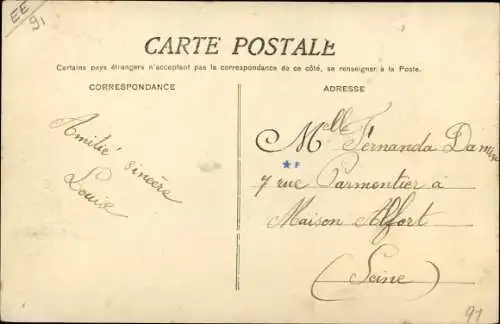 EE
91
CARTE POSTALE
Certains pays étrangers n'acceptant pas la correspondance de ce côté, se renseigner à la Poste.
CORRESPONDANCE
Amitié sincère
Louise
ADRESSE
Melle Fernanda
7 rue Parmentier à
Maison Alfort
(Seine)
91